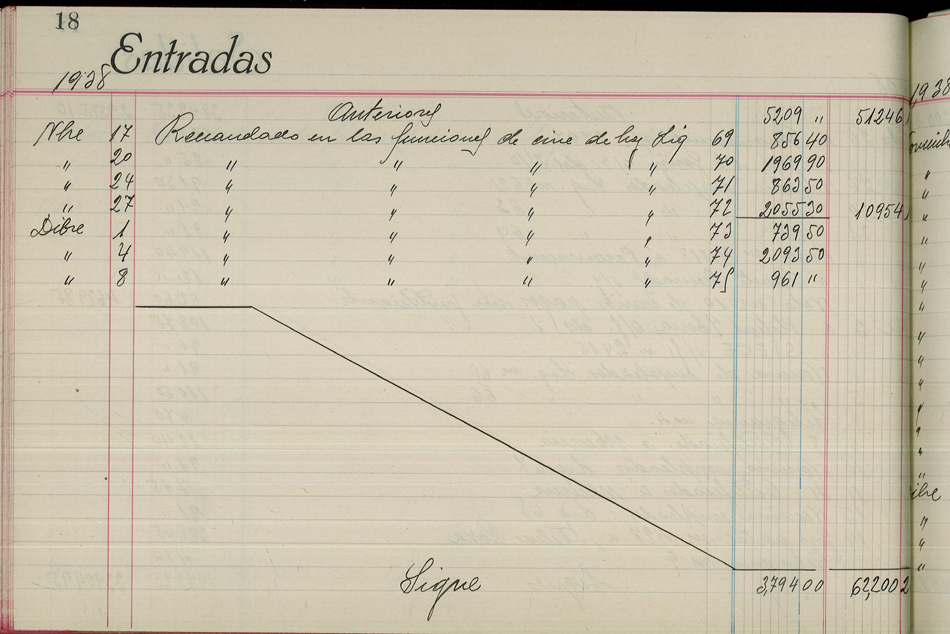 18
Entradas
1938
Anterior 5209 " 51246
Nbre 17 Recaudado en las funciones de cine de hoy Liq 69 856 40
" 20 " " " " 70 1969 90
" 24 " " " " 71 863 50
" 27 " " " " 72 2055 30 10954
Dibre 1 " " " " 73 739 50
" 4 " " " " 74 2093 50
" 8 " " " " 75 961 "
Sigue 3,794 00 62,200 2
1938
"
"
"
"
ibre
"
"
"